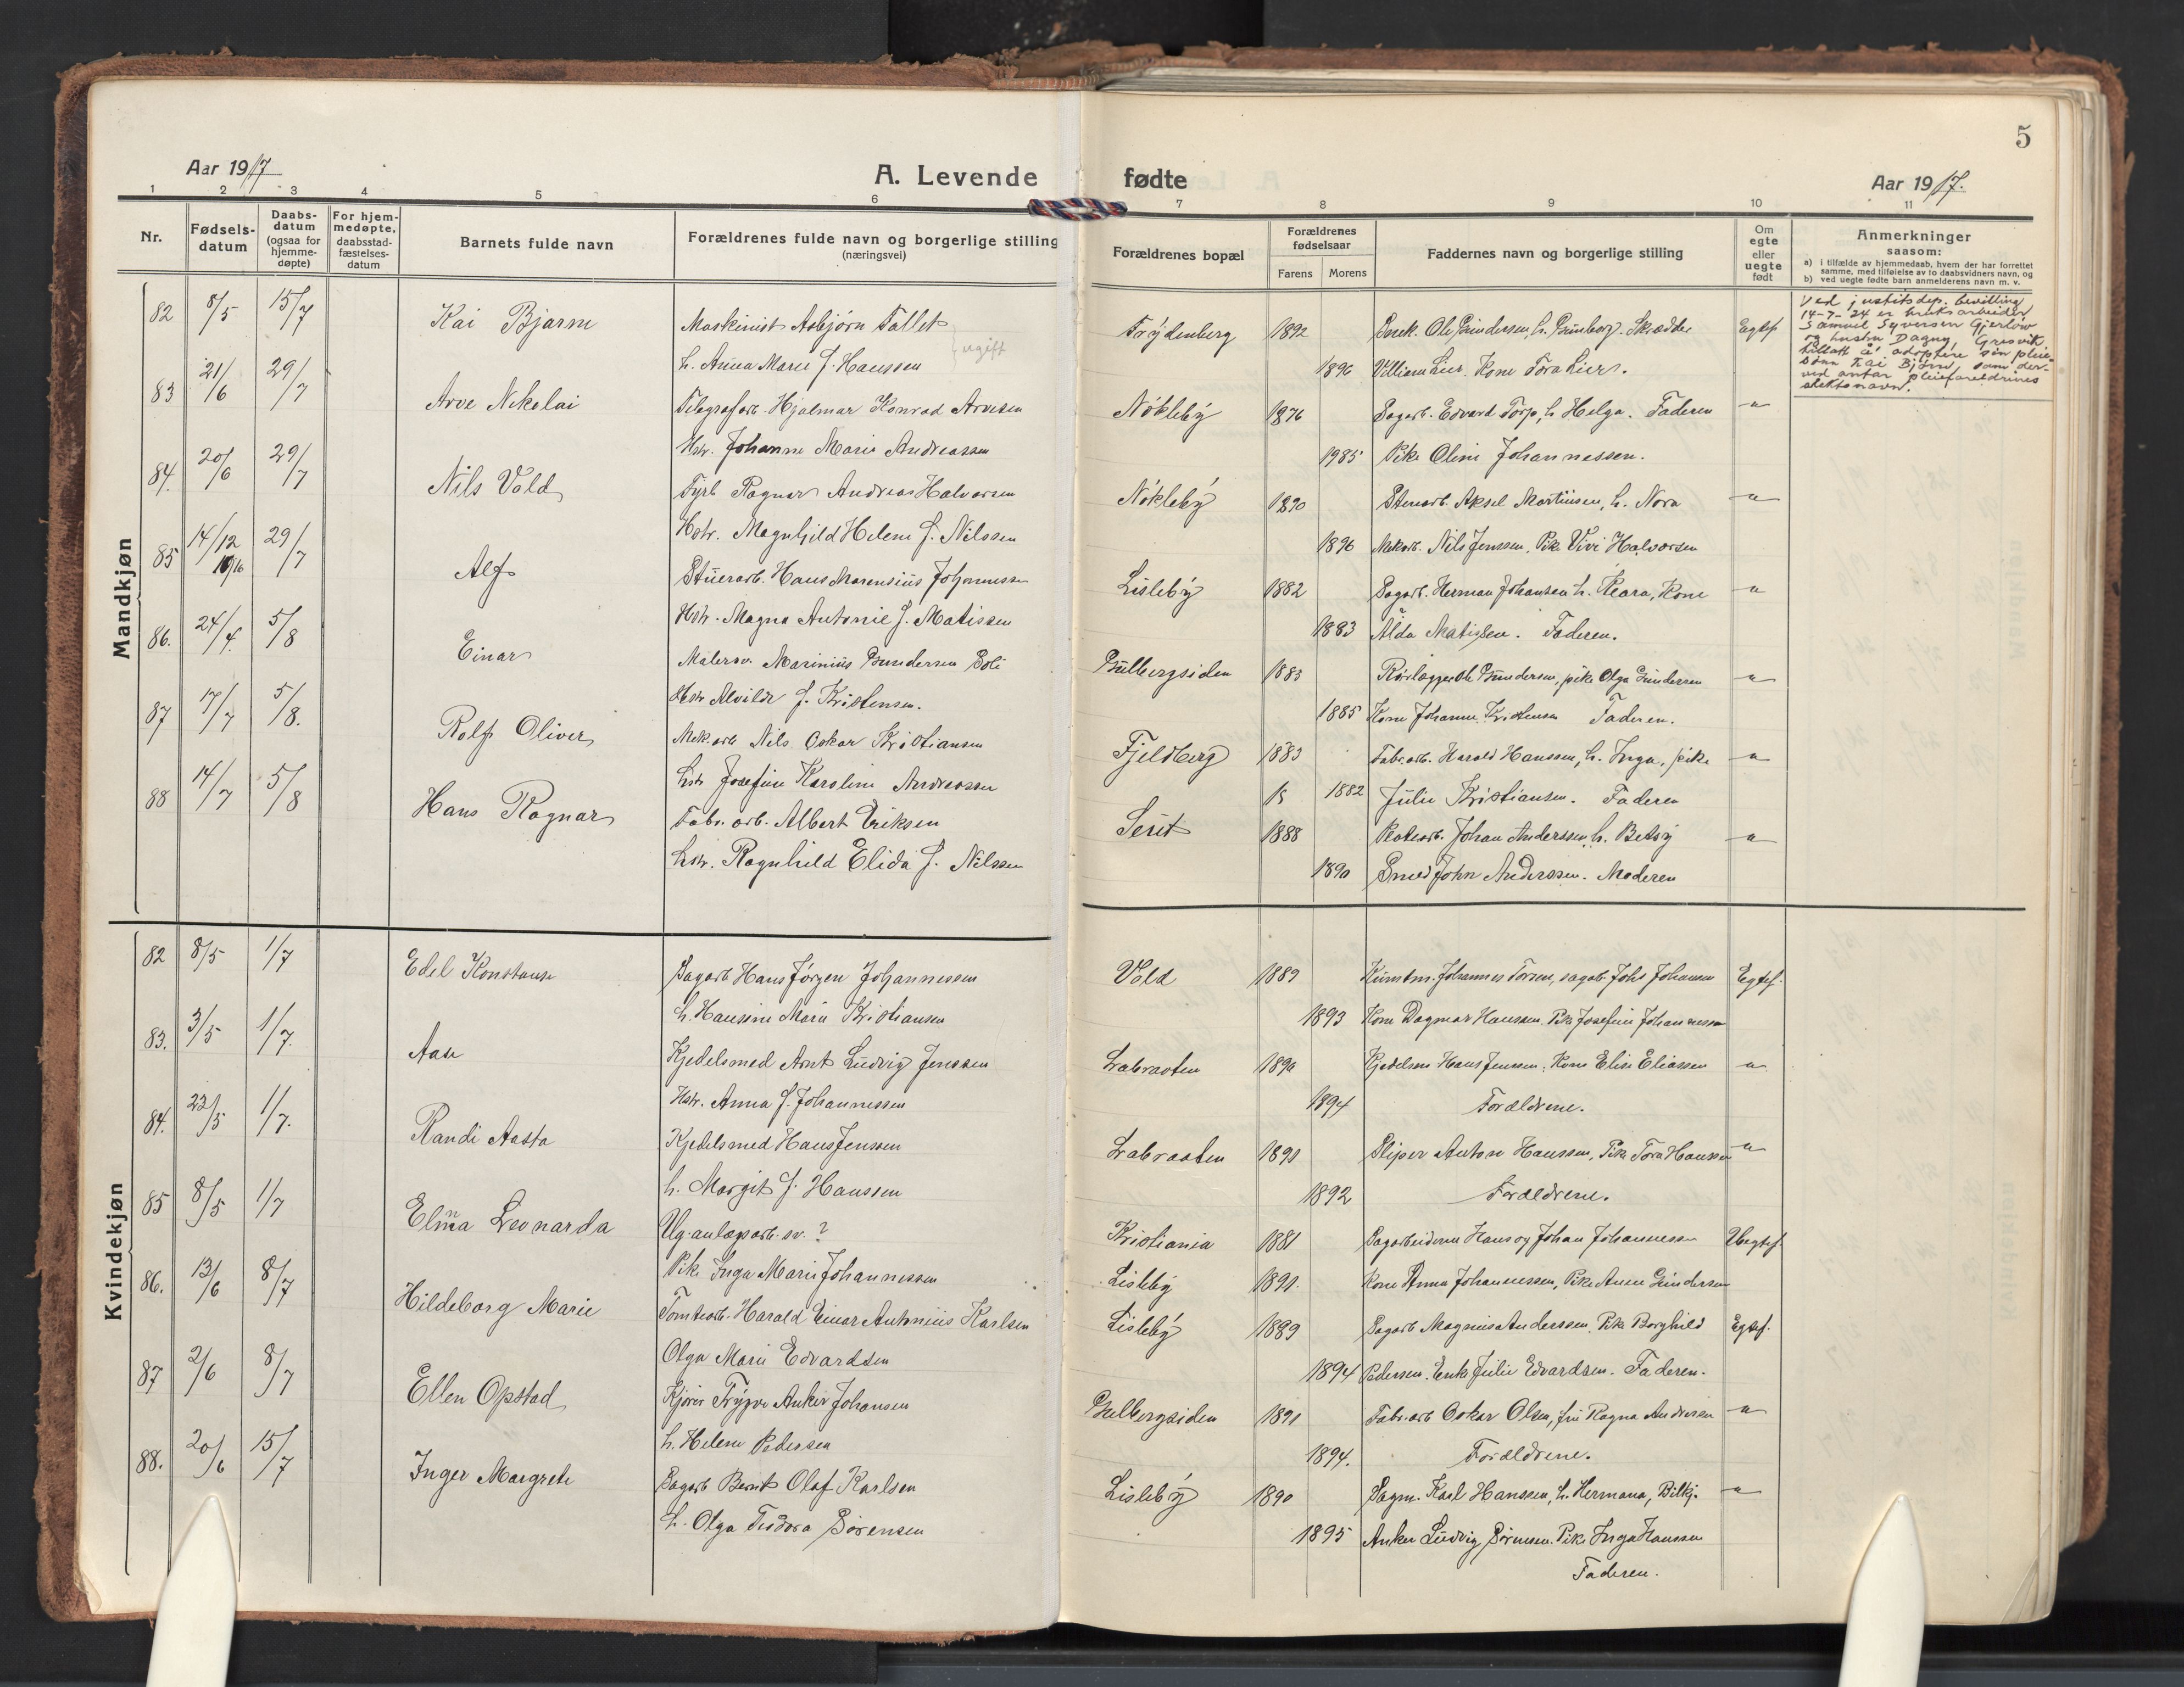 5
Aar 1917
A. Levende
fødte
Aar 1917.
1 2 3 4 5 6 7 8 9 10 11
Nr.
Fødsels-
datum
Daabs-
datum
(ogsaa for
hjemme-
døpte)
For hjem-
medøpte,
daabsstad-
fæstelses-
datum
Barnets fulde navn
Forældrenes fulde navn og borgerlige stilling
(næringsvei)
Forældrenes bopæl
Forældrenes
fødselsaar
Farens Morens
Faddernes navn og borgerlige stilling
Om
egte
eller
uegte
født
Anmerkninger
saasom:
a) i tilfælde av hjemmedaab, hvem der har forrettet
samme, med tilføielse av to daabsvidners navn, og
b) ved uegte fødte barn anmelderens navn m. v.
Mandkjøn
82 8/5 15/7 Kai Bjarne Maskinist Asbjørn Tallet Frydenberg 1892 Snek. Ole Gundersen, h. Gunborg. Skrædder Egtef.
ugift
h. Anna Marie f. Hanssen 1896 Villiam Lier. Kone Tora Lier.
Ved justitsdep. bevilling
14-7-'24 er bruksarbeider
Samuel Syversen Gjerløw
og hustru Dagny, Gresvik
tillatt å adoptere sin pleie-
sønn Kai Bjørn, som der-
ved antar pleieforeldrenes
slektsnavn.
83 21/6 29/7 Arve Nikolai Telegrafarb. Hjalmar Konrad Arvesen Nøkleby 1876 Sagarb. Edvard Torp, h. Helga. Faderen "
Hstr. Johanne Marie Andreassen 1985 Pike Oline Johannessen.
84. 20/6 29/7 Nils Vold Fyrb Ragnar Andreas Halvorsen Nøkleby 1890 Stenarb. Aksel Martinsen, h. Nora "
Hstr. Magnhild Helene f. Nilssen 1896 Mekarb. Nils Jenssen, Pike Vivi Halvorsen
85 14/12 1916 29/7 Alf Stuerarb. Hans Marensius Johannessen Lisleby 1882 Sagarb. Herman Johansen h. Klara, Kone "
Hstr. Magna Antonie f. Matissen 1883 Alda Matissen. Faderen.
86. 24/4. 5/8 Einar Malersv. Marinius Gundersen Boli Gulbergsiden 1883 Rørlægger Ole Gundersen, pike Olga Gundersen "
Hstr Alvilde f. Kristensen. 1885 Kone Johanne Kristensen Faderen.
87 17/7 5/8. Rolf Oliver Mek.arb Nils Oskar Kristiansen Fjeldberg 1883 Fabr.arb. Harald Hanssen, h. Inga, pike "
hstr Josefine Karoline Andreassen 18 1882 Julie Kristiansen. Faderen
88 14/7 5/8 Hans Ragnar Fabr. arb. Albert Eriksen Seut 1888 Johan Anderssen, h. Betsy "
hstr. Ragnhild Elida f. Nilssen 1890 Smed John Anderssen. Moderen
Kvindekjøn
82 8/5 1/7 Edel Konstanse Sagarb Hans Jørgen Johannessen Vold 1889 Kunstm. Johannes Torsen, sagarb. Johs Johansen Egtef.
h. Hansine Marie Kristiansen 1893 Kone Dagmar Hanssen. Pike Josefine Johannessen
83. 3/5 1/7. Aase Kjedelsmed Arnt Ludvig Jenssen Labraaten 1890 Kjedelsm Hans Jenssen. Kone Elise Eliassen "
Hstr. Anna f. Johannessen 1894 Forældrene.
84. 22/5 1/7. Randi Aasta Kjedelsmed Hans Jenssen Labraaten 1891 Sliper Anton Hanssen, Pike Tora Hanssen "
h. Margit f. Hanssen 1892 Forældrene.
85 8/5 1/7 Elna Leonarda Ug. anlægsarb. sv. ? Kristiania 1881 Sagarbeiderne Hans og Johan Johannessen Uegtef.
Pike Inga Marie Johannessen Lisleby 1891. Kone Anna Johannessen, Pike Anne Gundersen
86. 13/6 8/7 Hildeborg Marie Tomtearb. Harald Einar Antonius Karlsen Lisleby 1889 Sagarb Magnus Anderssen. Pike Borghild Egtef.
Olga Marie Edvardsen 1894 Pedersen. Enke Julie Edvardsen. Faderen.
87 2/6 8/7 Ellen Opstad Kjører Trygve Anker Johansen Gulbergsiden 1891 Fabr.arb Oskar Olsen, fru Ragna Andresen "
h. Helene Pedersen 1894. Forældrene.
88. 20/6 15/7 Inger Margrete Sagarb Bernt Olaf Karlsen Lisleby 1890 Sagm. Karl Hanssen, h. Hermana, Bilkj. "
h. Olga Teodora Sørensen 1895 Anker Ludvig Sørensen. Pike Inga Hanssen
Faderen.